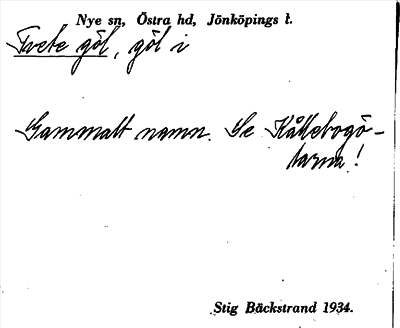 Nye sn, Östra hd, Jönköpings l.
Tvete göl, göl i
Gammalt namn. Se Kållebogö-
larna!
Stig Bäckstrand 1934.